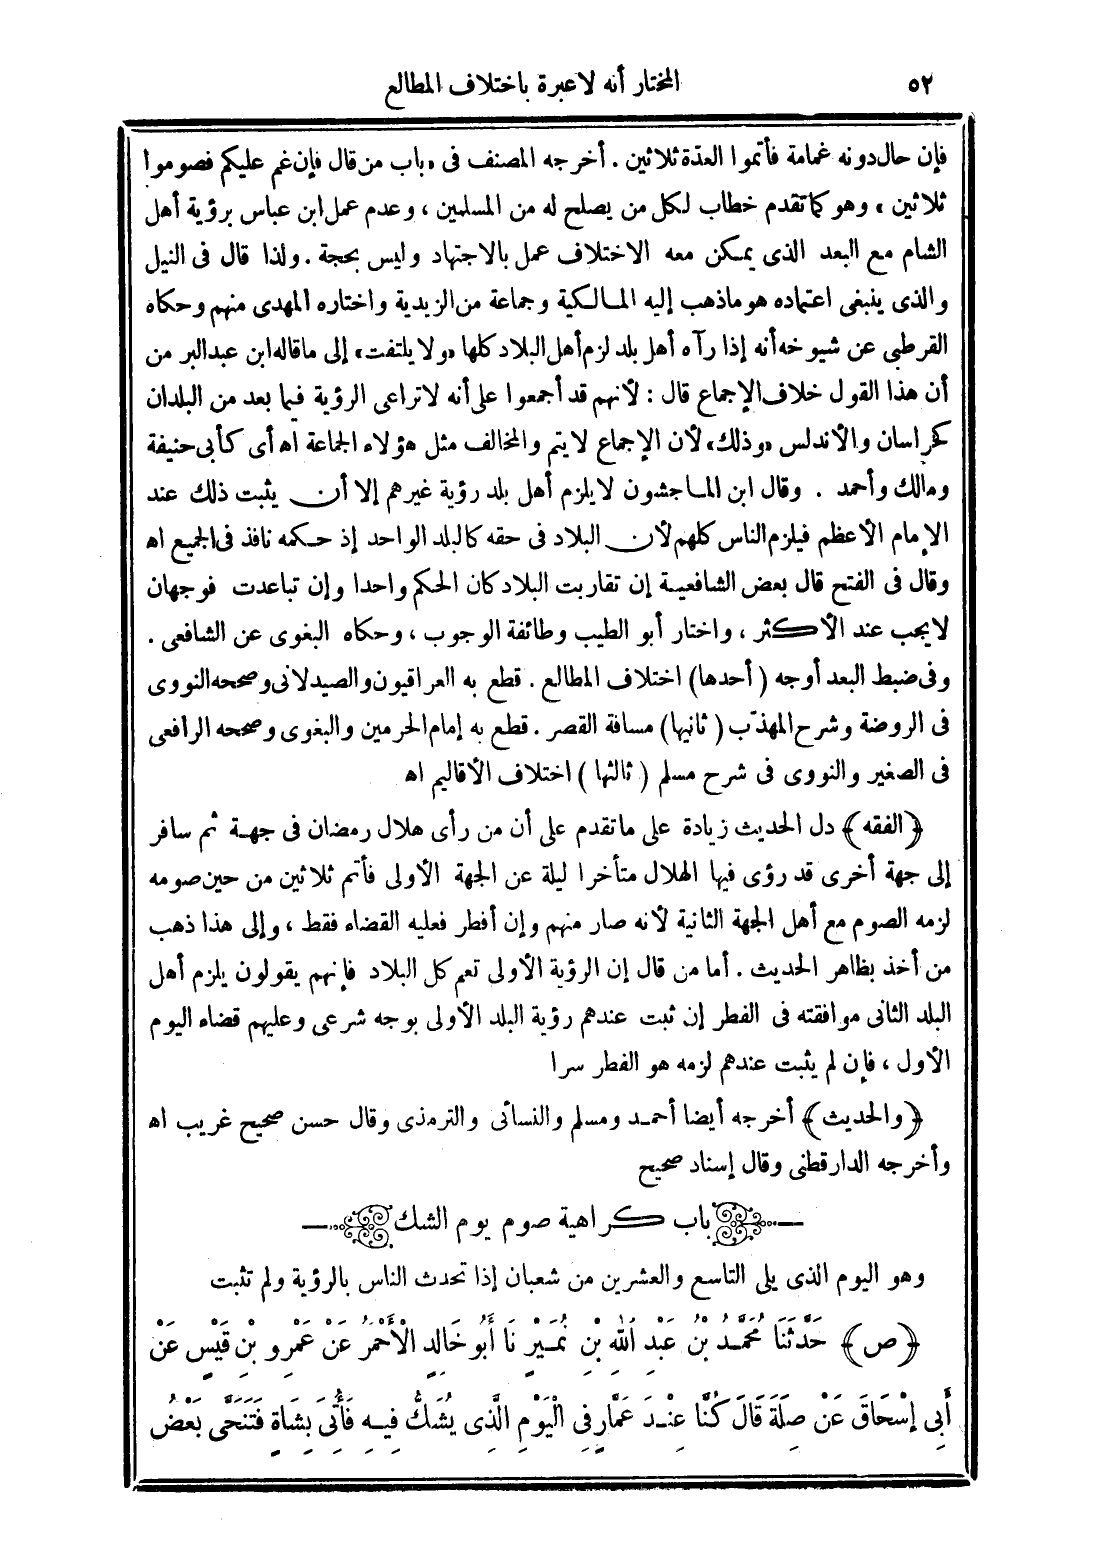 ٥٢
المختار أنه لا عبرة باختلاف المطالع
فإن حال دونه غمامة فأتموا العدة ثلاثين . أخرجه المصنف فى «باب من قال فإن غم عليكم فصوموا
ثلاثين» وهو كما تقدم خطاب لكل من يصلح له من المسلمين ، وعدم عمل ابن عباس برؤية أهل
الشام مع البعد الذى يمكن معه الاختلاف عمل بالاجتهاد وليس بحجة . ولذا قال فى النيل
والذى ينبغى اعتماده هو ما ذهب إليه المالكية وجماعة من الزيدية واختاره المهدى منهم وحكاه
القرطبى عن شيوخه أنه إذا رآه أهل بلد لزم أهل البلاد كلها «ولا يلتفت» إلى ما قاله ابن عبد البر من
أن هذا القول خلاف الإجماع قال : لأنهم قد أجمعوا على أنه لا تراعى الرؤية فيما بعد من البلدان
كخراسان والأندلس «وذلك» لأن الإجماع لا يتم والمخالف مثل هؤلاء الجماعة اه أى كأبى حنيفة
ومالك وأحمد . وقال ابن الماجشون لا يلزم أهل بلد رؤية غيرهم إلا أن يثبت ذلك عند
الإمام الأعظم فيلزم الناس كلهم لأن البلاد فى حقه كالبلد الواحد إذ حكمه نافذ فى الجميع اه
وقال فى الفتح قال بعض الشافعية إن تقاربت البلاد كان الحكم واحدا وإن تباعدت فوجهان
لا يجب عند الأكثر ، واختار أبو الطيب وطائفة الوجوب ، وحكاه البغوى عن الشافعى .
وفى ضبط البعد أوجه (أحدها) اختلاف المطالع . قطع به العراقيون والصيدلانى وصححه النووى
فى الروضة وشرح المهذّب (ثانيها) مسافة القصر . قطع به إمام الحرمين والبغوى وصححه الرافعى
فى الصغير والنووى فى شرح مسلم (ثالثها) اختلاف الأقاليم اه
﴿الفقه﴾ دل الحديث زيادة على ما تقدم على أن من رأى هلال رمضان فى جهة ثم سافر
إلى جهة أخرى قد رؤى فيها الهلال متأخرا ليلة عن الجهة الأولى فأتم ثلاثين من حين صومه
لزمه الصوم مع أهل الجهة الثانية لأنه صار منهم وإن أفطر فعليه القضاء فقط ، وإلى هذا ذهب
من أخذ بظاهر الحديث . أما من قال إن الرؤية الأولى تعم كل البلاد فإنهم يقولون يلزم أهل
البلد الثانى موافقته فى الفطر إن ثبت عندهم رؤية البلد الأولى بوجه شرعى وعليهم قضاء اليوم
الأول ، فإن لم يثبت عندهم لزمه هو الفطر سرا
﴿والحديث﴾ أخرجه أيضا أحمد ومسلم والنسائى والترمذى وقال حسن صحيح غريب اه
وأخرجه الدارقطنى وقال إسناد صحيح
باب كراهية صوم يوم الشك
وهو اليوم الذى يلى التاسع والعشرين من شعبان إذا تحدث الناس بالرؤية ولم تثبت
﴿ص﴾ حَدَّثَنَا مُحَمَّدُ بْنُ عَبْدِ اللهِ بْنِ نُمَيْرٍ نَا أَبُو خَالِدٍ الْأَحْمَرُ عَنْ عَمْرِو بْنِ قَيْسٍ عَنْ
أَبِى إِسْحَاقَ عَنْ صِلَةَ قَالَ كُنَّا عِنْدَ عَمَّارٍ فِى الْيَوْمِ الَّذِى يُشَكُّ فِيهِ فَأُتِىَ بِشَاةٍ فَتَنَحَّى بَعْضُ